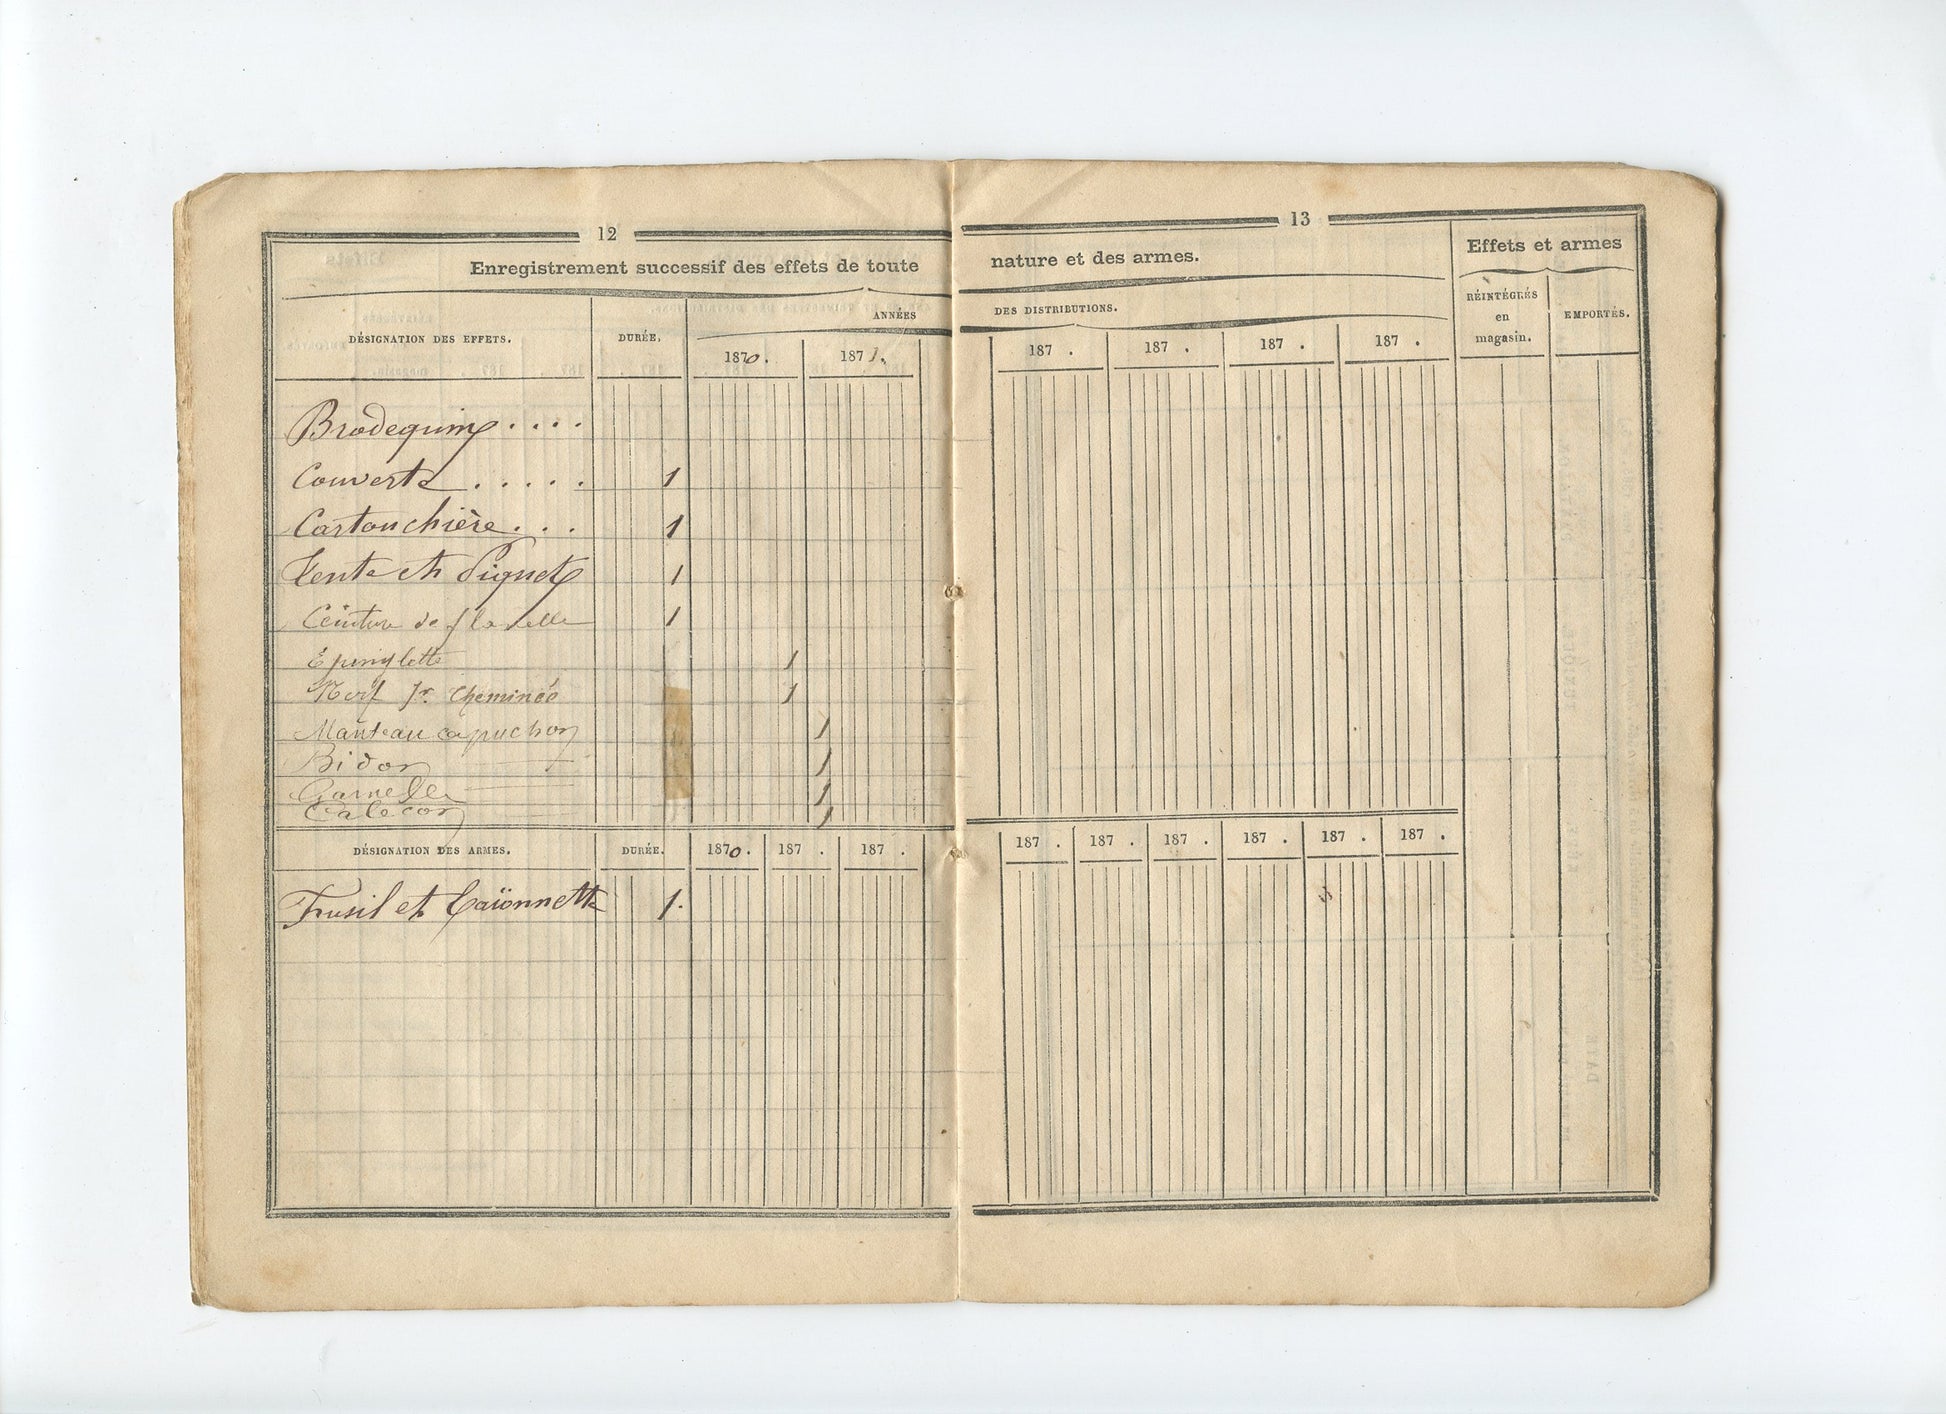 12
Enregistrement successif des effets de toute
DÉSIGNATION DES EFFETS.
DURÉE.
ANNÉES
1870.
1871.
Brodequins....
Couverte..... 1
Cartouchière... 1
Tente et Piquets 1
Ceinture de flanelle 1
Epinglette 1
cheminée 1
Manteau capuchon 1
Bidon 1
Gamelle 1
Calecon 1
DÉSIGNATION DES ARMES.
DURÉE.
1870.
187 .
187 .
Fusil et baïonnette 1.
13
nature et des armes.
Effets et armes
DES DISTRIBUTIONS.
RÉINTÉGRÉS
en
magasin.
EMPORTÉS.
187 .
187 .
187 .
187 .
187 .
187 .
187 .
187 .
187 .
187 .